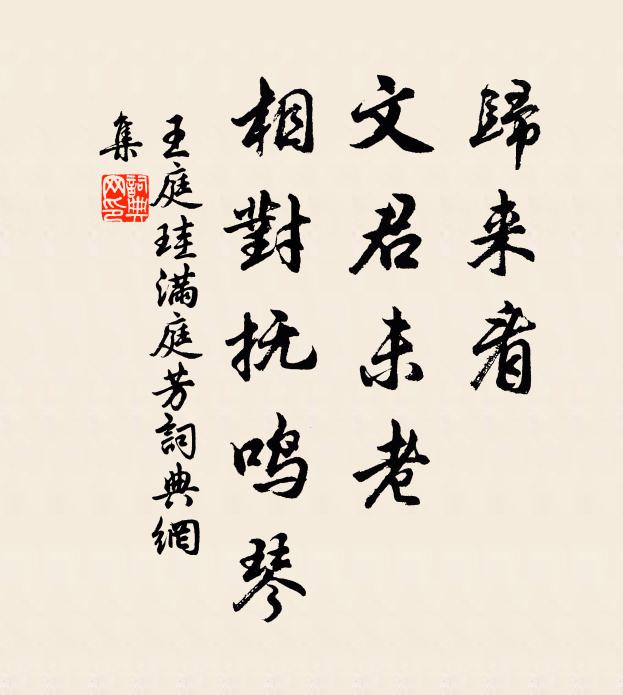 歸来看
文君未老
相對抚鸣琴
王庭珪滿庭芳詞典網
集
詞典
网印